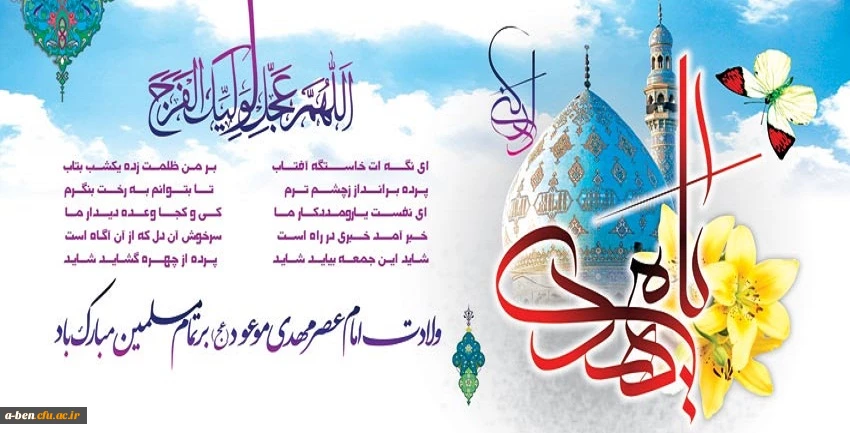 اللهم عجل لولیک الفرج
ای نگه ات خاستگه آفتاب    بر من ظلمت زده یکشب بتاب
پرده برانداز ز چشم ترم    تا بتوانم به رخت بنگرم
ای نفست یار و مددکار ما    کی و کجا وعده دیدار ما
خبر آمد خبری در راه است    سرخوش آن دل که از آن آگاه است
شاید این جمعه بیاید شاید    پرده از چهره گشاید شاید
ولادت امام عصر مهدی موعود (عج) بر تمام مسلمین مبارک باد
یا مهدی
a-ben.cfu.ac.ir